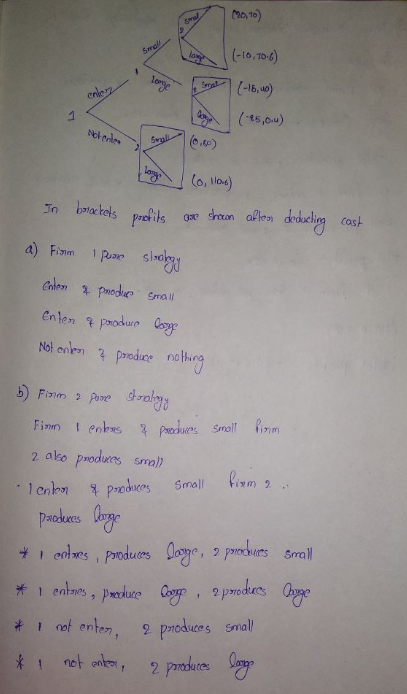 small (20,70)
2
large (-10,70.6)
small
1
enter
large
2 small (-15,40)
large (-85,0.4)
1
Not enter
2 small (0,80)
large (0,110.6)
In brackets profits are shown after deducting cost
a) Firm 1 pure strategy
Enter & produce small
Enter & produce large
Not enter & produce nothing
b) Firm 2 pure strategy
Firm 1 enters & produces small firm
2 also produces small
1 enter & produces small firm 2
produces large
* 1 entries, produces large, 2 produces small
* 1 entries, produce large, 2 produces large
* 1 not enter, 2 produces small
* 1 not enter, 2 produces large